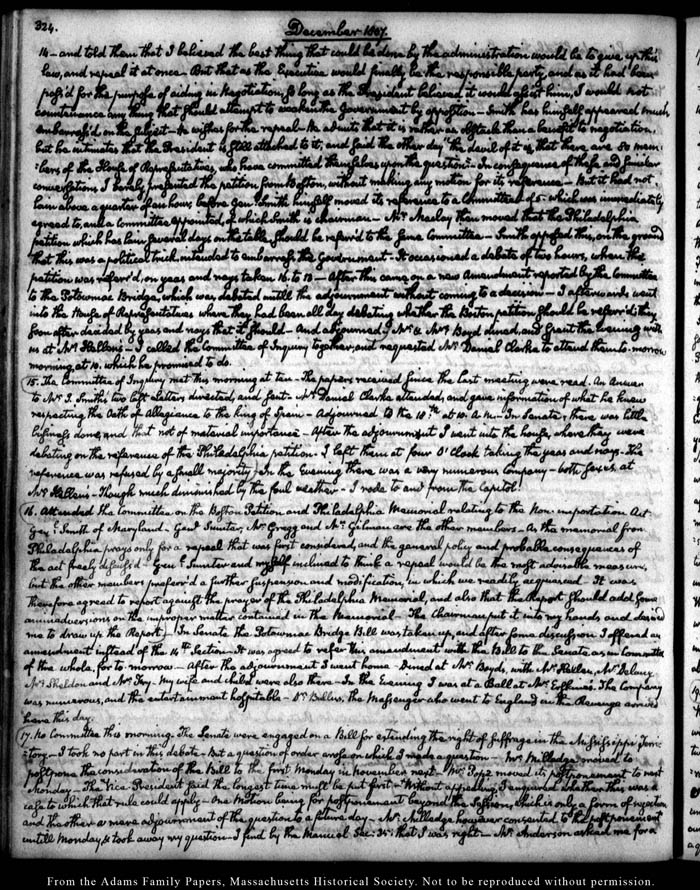 324.
December 1807.
14 - and told them that I believed the best thing that could be done by the administration would be to give up this
law, and repeal it at once. But that as the Executive would finally be the responsible party, and as it had been
pass'd for the purpose of aiding in Negotiation, so long as the President believed it would assist him, I would not
countenance any thing that should attempt to weaken the Government by opposition - Smith has himself appeared much
embarrass'd on the subject - He wishes for the repeal - He admits that it is rather an obstacle than a benefit to negotiation,
but he intimates that the President is still attached to it; and said the other day the devil of it is, that there are 80 mem-
:bers of the House of Representatives, who have committed themselves upon the question - In consequence of these and similar
conversations I barely presented the petition from Boston, without making any motion for its reference - But it had not
lain above a quarter of an hour, before Genl. Smith himself moved its reference to a Committee of 5. which was immediately
agreed to, and a Committee appointed, of which Smith is chairman - Mr. Maclay then moved that the Philadelphia
petition which has lain several days on the table should be referr'd to the same Committee - Smith opposed this, on the ground
that this was a political trick, intended to embarrass the Government - It occasioned a debate of two hours, when the
petition was referr'd, on yeas and nays taken 16 to 13 - After this came on a new Amendment reported by the Committee
to the Potowmac Bridge, which was debated untill the adjournment without coming to a decision - I afterwards went
into the House of Representatives where they had been all day debating whether the Boston petition should be referr'd; they
soon after decided by yeas and nays that it should - And adjourned. Mr. & Mrs. Boyd dined, and spent the evening with
us at Mr. Hellen's - I called the Committee of Inquiry together, and requested Mr. Daniel Clarke to attend them to-morrow
morning at 10. which he promised to do.
15. The Committee of Inquiry met this morning at ten - The papers received since the last meeting were read. An Answer
to Mr. J. Smith's two last Letters directed, and sent - Mr. Daniel Clarke attended, and gave information of what he knew
respecting the Oath of Allegiance to the King of Spain - Adjourned to the 18th. at 10. A.M. - In Senate, there was little
business done, and that not of material importance - After the adjournment I went into the house, where they were
debating on the reference of the Philadelphia petition - I left them at four O'Clock taking the yeas and nays - The
reference was refused by a small majority - In the Evening there was a very numerous Company - both sexes, at
Mr. Hellen's - though much diminished by the foul weather - I rode to and from the Capitol.
16. Attended the Committee on the Boston Petition and Philadelphia Memorial relating to the Non-importation Act -
Genl. Smith of Maryland - Genl. Sumter, Mr. Gregg and Mr. Gilman are the other members - As the memorial from
Philadelphia prays only for a repeal that was first considered, and the general policy and probable consequences of
the act freely discuss'd - Genl. Sumter and myself inclined to think a repeal would be the most advisable measure,
but the other members preferr'd a further suspension and modification, in which we readily acquiesced - It was
therefore agreed to report against the prayer of the Philadelphia Memorial, and also that the Report should add some
animadversions on the improper matter contained in the Memorial - The Chairman put it into my hands and desired
me to draw up the Report. In Senate the Potowmac Bridge Bill was taken up, and after some discussion I offered an
amendment instead of the 14th. Section - It was agreed to refer this amendment with the Bill to the Senate as in Committee
of the whole, for to-morrow - After the adjournment I went home - Dined at Mr. Boyd's, with Mr. Hellen, Mr.
Mr. Sheldon and Mr. Fry. My wife and child were also there - In the Evening I was at a Ball at Mr. Erskine's. The Company
was numerous, and the entertainment hospitable - Dr. Bullus, the Messenger who went to England in the Revenge arrived
here this day.
17. No Committee this morning. The Senate were engaged on a Bill for extending the right of suffrage in the Mississippi Terri-
:tory - I took no part in this debate - But a question of order arose on which I made a question - Mr. Milledge moved to
postpone the consideration of the Bill to the first Monday in November next - Mr. Pope moved its postponement to next
Monday - The Vice President said the longest time must be put first - Without appealing, I enquired whether this was a
case to which that rule could apply - One Motion being for postponement beyond the Session, which is only a form of rejection
and the other a mere adjournment of the question to a future day - Mr. Milledge however consented to the postponement
untill Monday & took away my question - I find by the Manual Sec: 35: that I was right - Mr. Anderson asked me for a
From the Adams Family Papers, Massachusetts Historical Society. Not to be reproduced without permission.